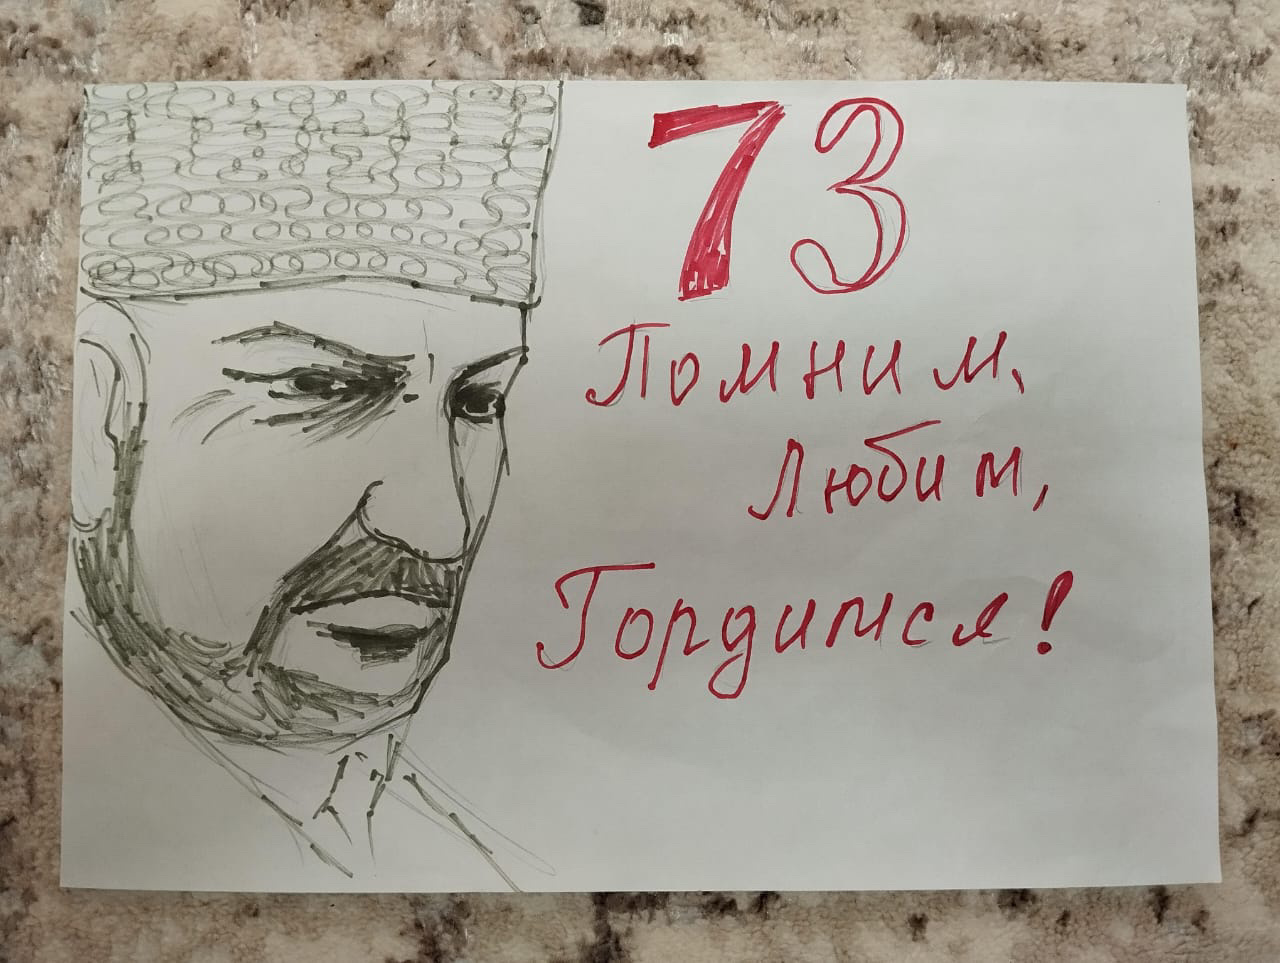 73
Помним,
Любим,
Гордимся!